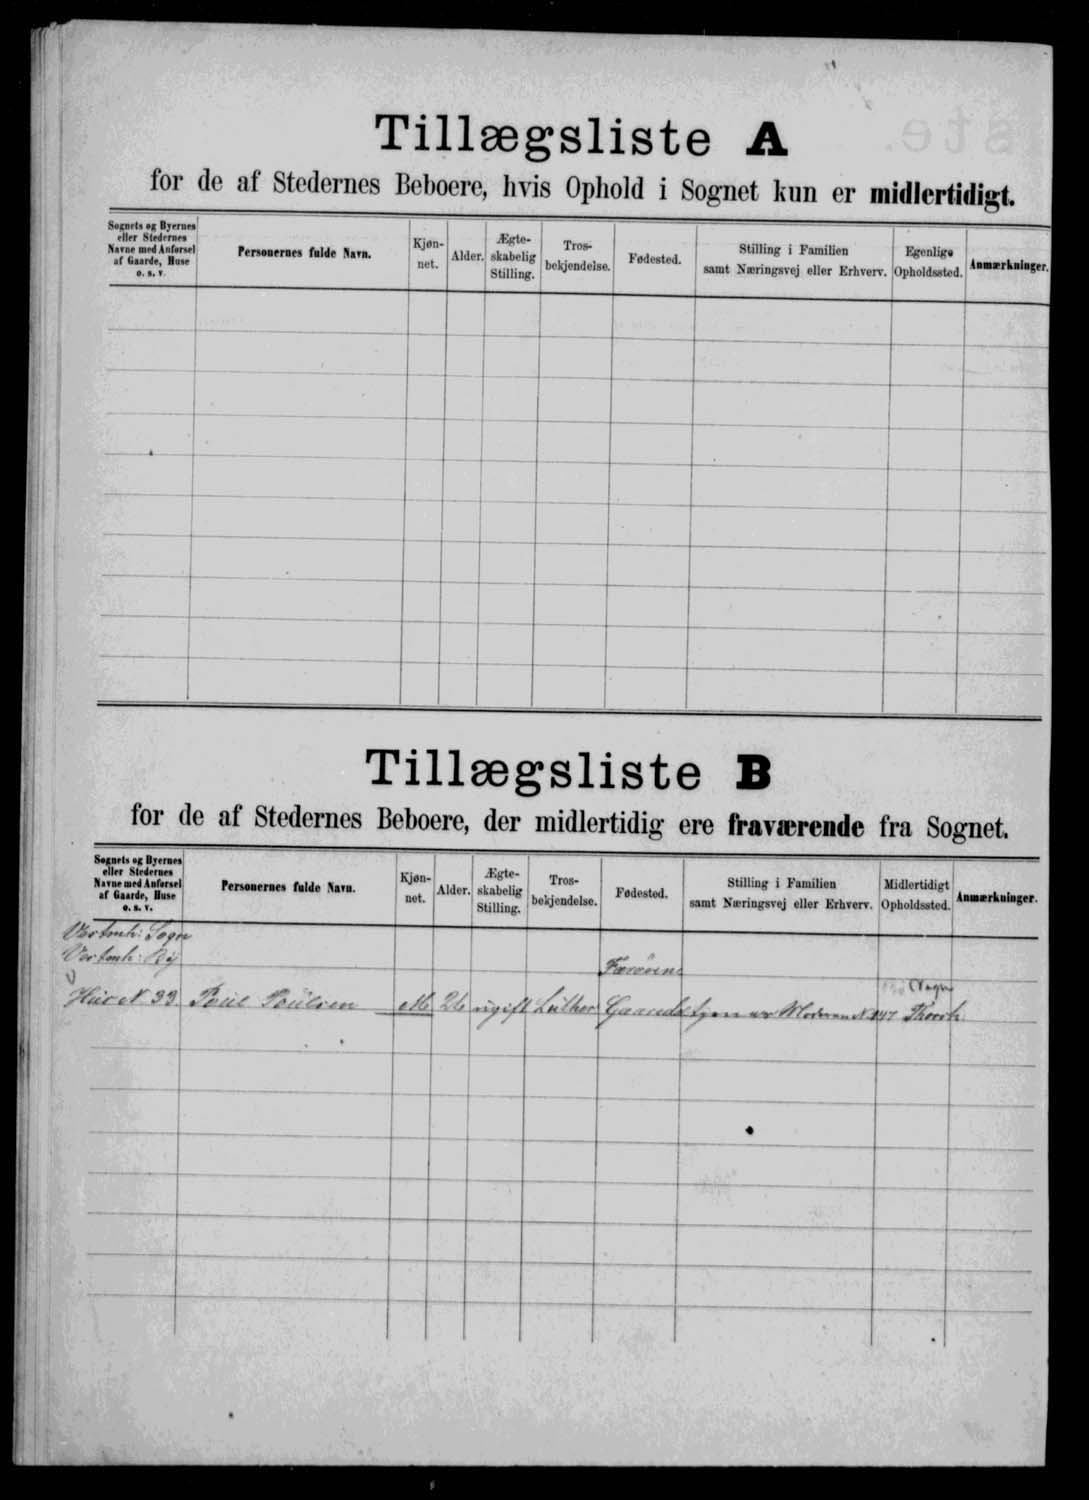 Tillægsliste A
for de af Stedernes Beboere, hvis Ophold i Sognet kun er midlertidigt.
Sognets og Byernes
eller Stedernes
Navne med Anførsel
af Gaarde, Huse
o. s. v.
Personernes fulde Navn.
Kjøn-
net.
Alder.
Ægte-
skabelig
Stilling.
Tros-
bekjendelse.
Fødested.
Stilling i Familien
samt Næringsvej eller Erhverv.
Egenlige
Opholdssted.
Anmærkninger.
Tillægsliste B
for de af Stedernes Beboere, der midlertidig ere fraværende fra Sognet.
Sognets og Byernes
eller Stedernes
Navne med Anførsel
af Gaarde, Huse
o. s. v.
Personernes fulde Navn.
Kjøn-
net.
Alder.
Ægte-
skabelig
Stilling.
Tros-
bekjendelse.
Fødested.
Stilling i Familien
samt Næringsvej eller Erhverv.
Midlertidigt
Opholdssted.
Anmærkninger.
Vestmh: Sogn
Vestmh: By
Færøerne
Sogn
Huus N 33 Poul Poulsen M 26 ugift Luther tjener Moderen